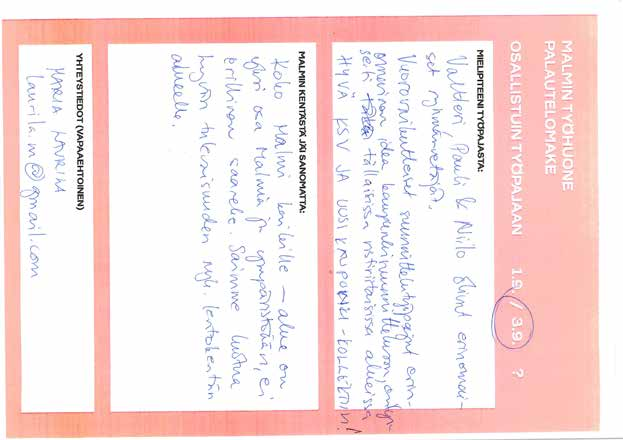 MALMIN TYÖHUONE
PALAUTELOMAKE
OSALLISTUIN TYÖPAJAAN 1.9. / 3.9. ?
MIELIPITEENI TYÖPAJASTA:
Valtteri, Pauli & Niilo olivat erinomai-
set ryhmänvetäjät.
Vuorovaikutteiset suunnittelutyöpajat erin-
omainen idea kaupunkisuunnitteluun,
seiti tällaisissa ristiriitaisissa alueissa
HYVÄ KSV JA UUSI KAUPUNKI-KOLLEKTIIVI!
MALMIN KENTÄSTÄ JÄI SANOMATTA:
Koko Malmi kaikille – alue on
osa Malmia ja ympäristöään, ei
erillinen saareke. Saimme luotua
hyvän tulevaisuuden nyk. lentokentän
alueelle.
YHTEYSTIEDOT (VAPAAEHTOINEN)
MARIA LAURILA
laurila.m@gmail.com